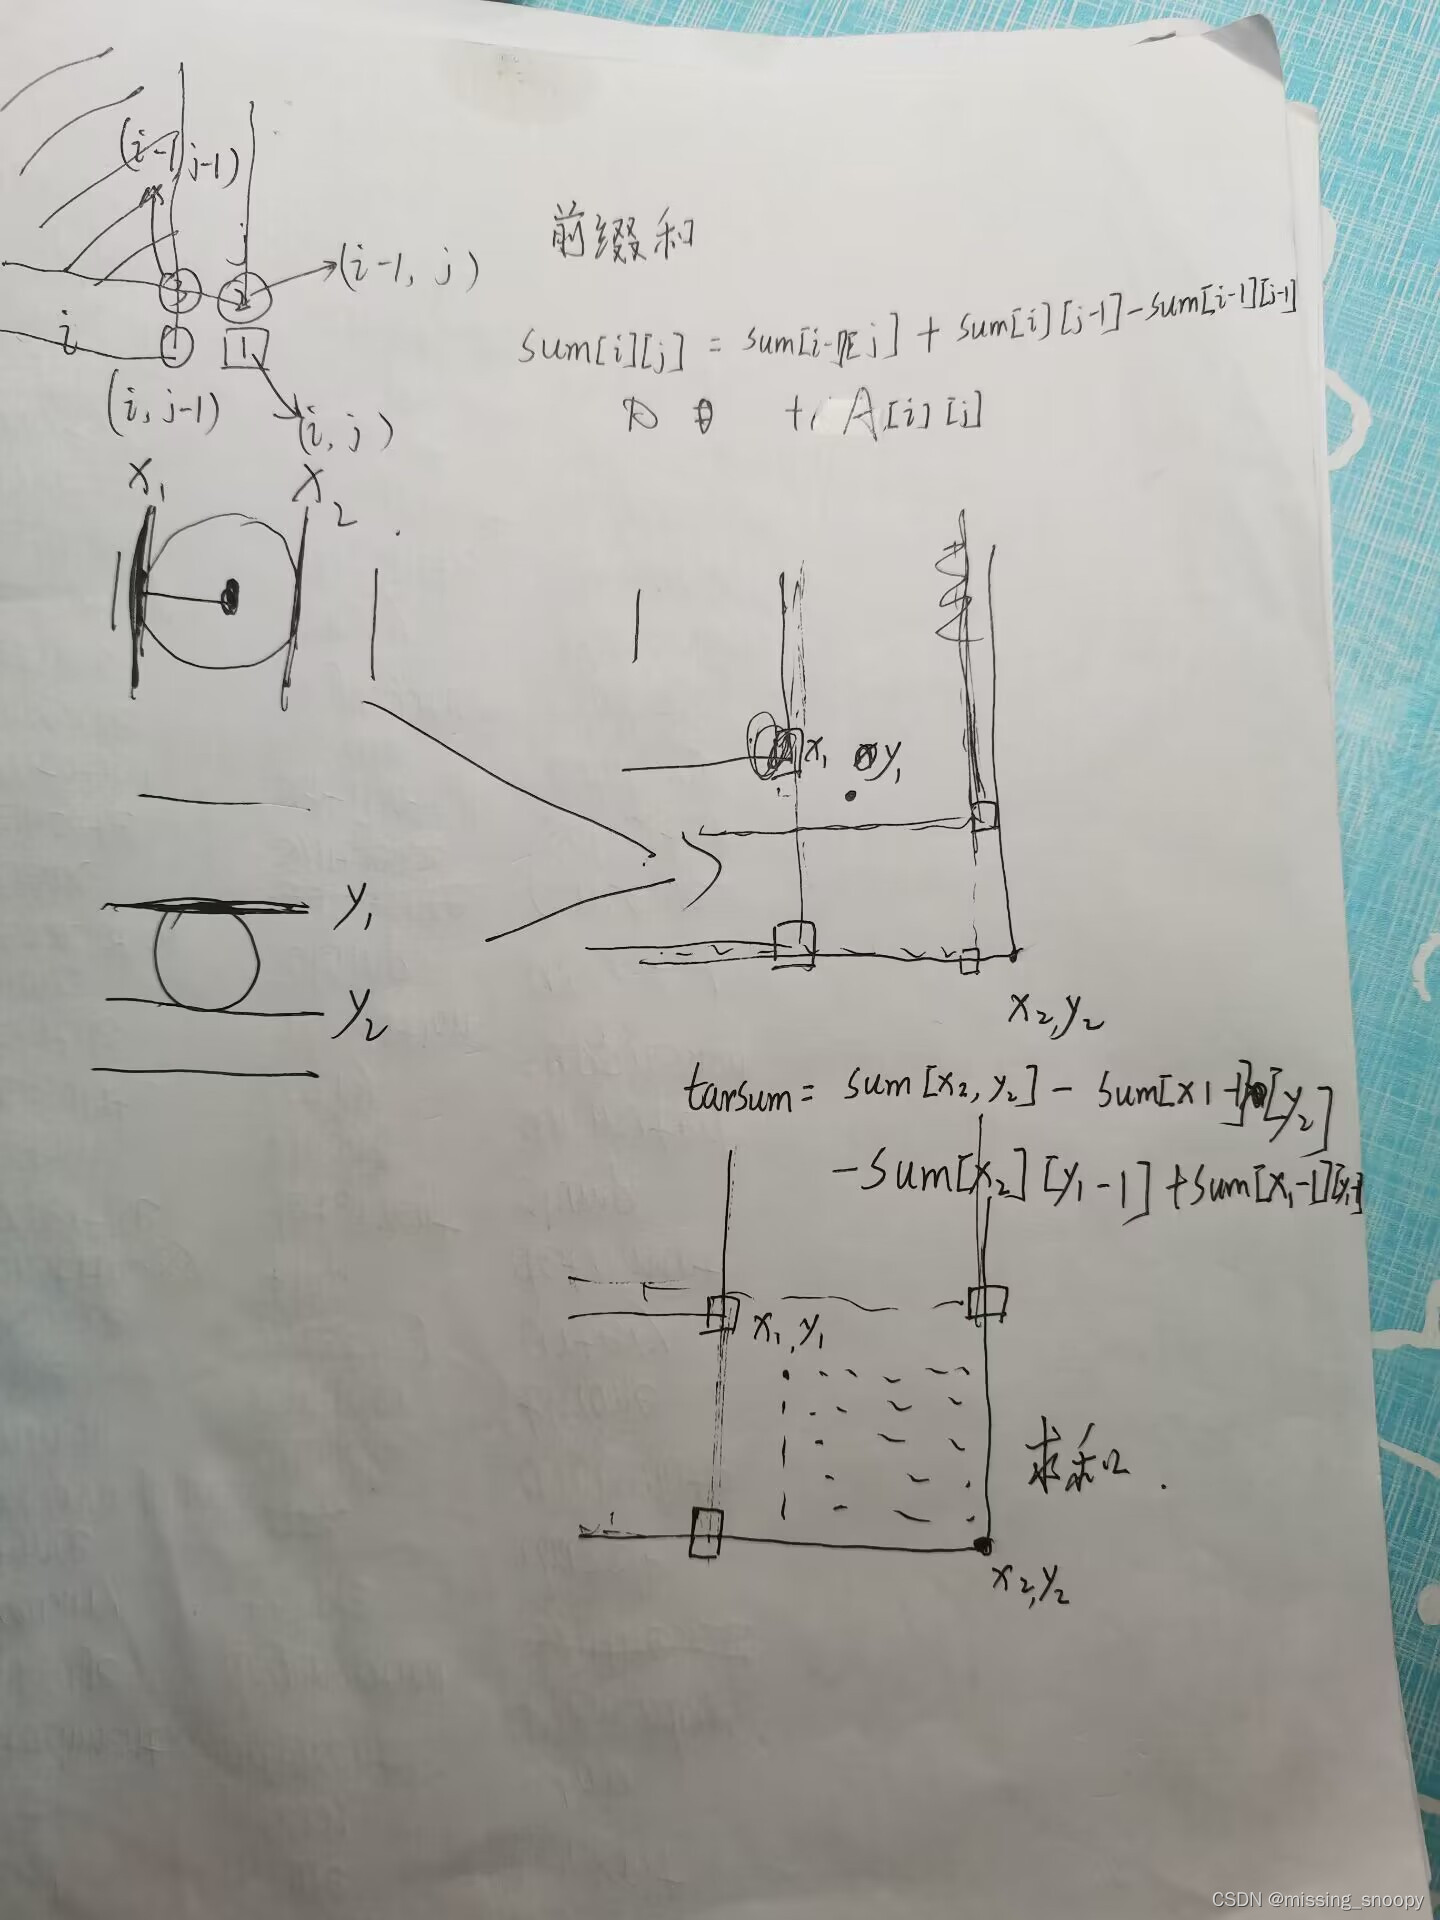 (i-1, j-1)
j
(i-1, j)
3
2
i
1
(i, j-1)
(i, j)
前缀和
sum[i][j] = sum[i-1][j] + sum[i][j-1] - sum[i-1][j-1]
+ A[i][j]
x₁
x₂
x₁ y₁
y₁
y₂
x₂,y₂
tarsum = sum[x₂, y₂] - sum[x1-1][y₂]
-sum[x₂][y₁-1] + sum[x₁-1][y₁-1]
x₁,y₁
求和
x₂,y₂
CSDN @missing_snoopy